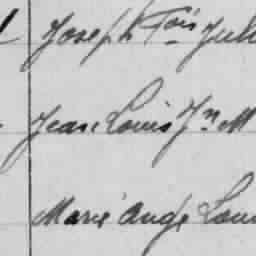 Joseph Fois Juli
Jean Louis Jn M
Marie Ange Loui